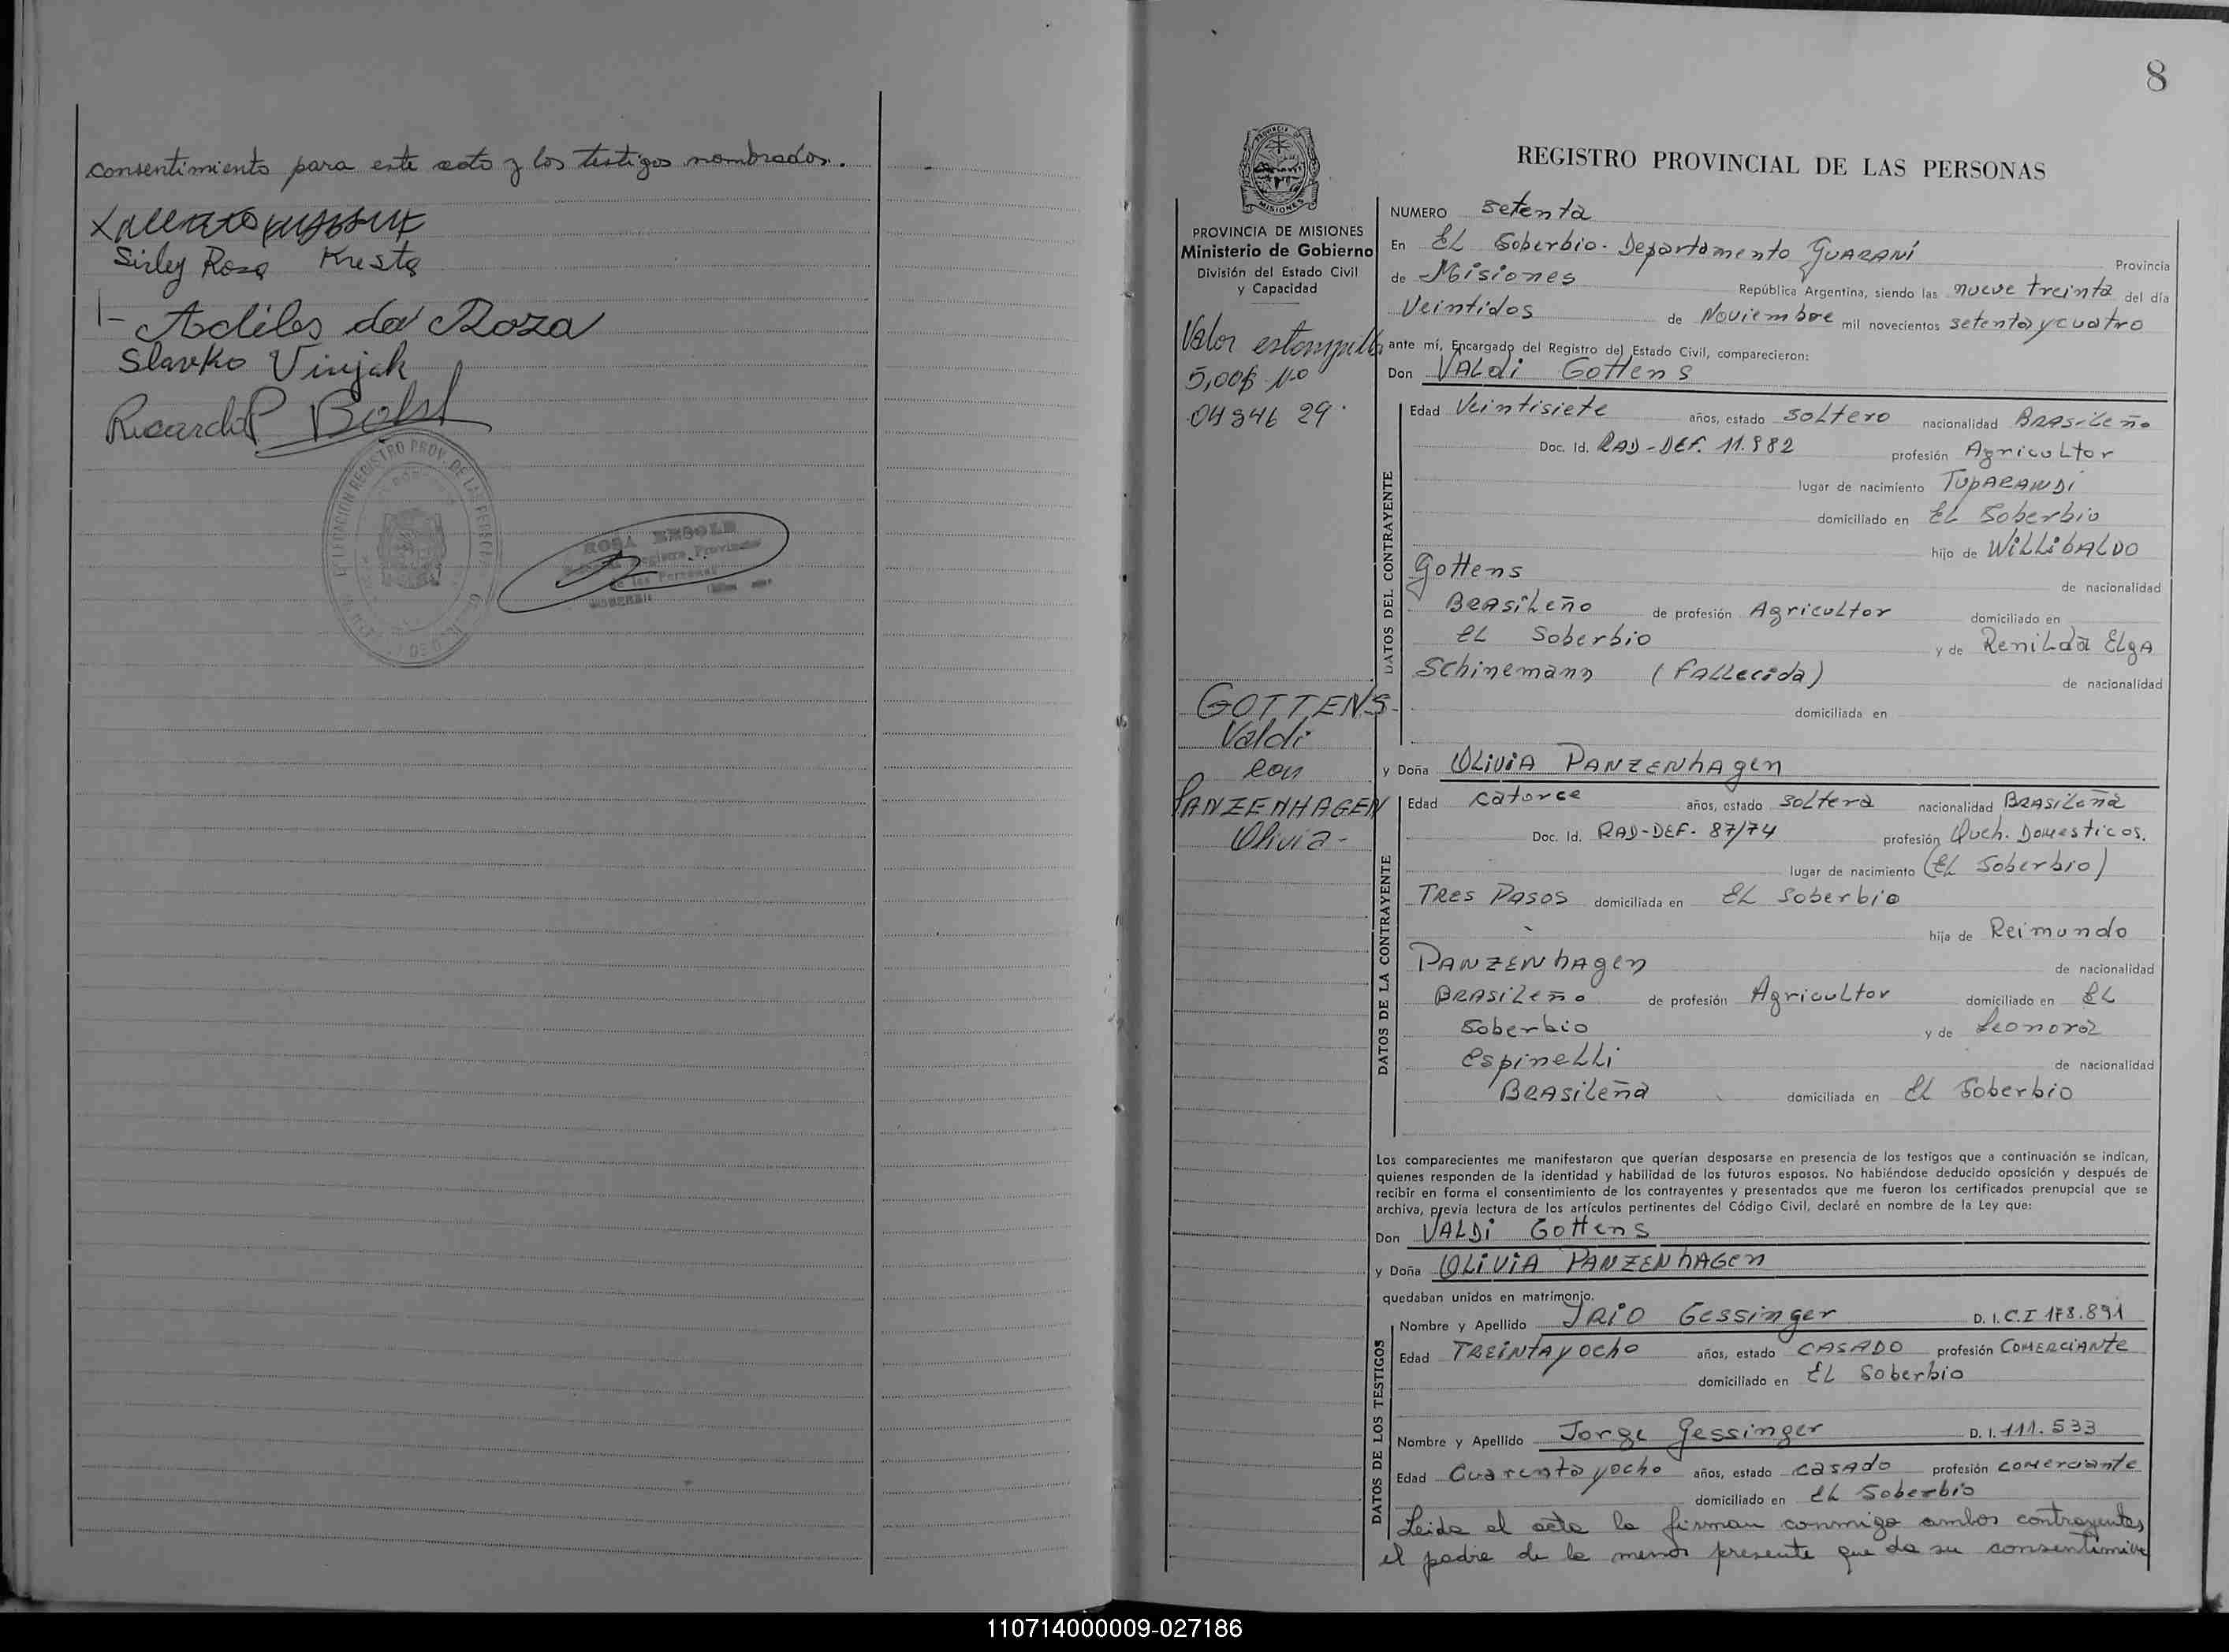 consentimiento para este acto y los testigos nombrados.
Sirley Rosa Kresta
Adiles da Roza
Slavko Vinjak
Ricardo P
REGISTRO PROV. DE LAS PERSONAS
ROSA
Registro Provincial
de las Personas
8
PROVINCIA DE
MISIONES
REGISTRO PROVINCIAL DE LAS PERSONAS
PROVINCIA DE MISIONES
Ministerio de Gobierno
División del Estado Civil
y Capacidad
Valor estampilla
5,00$ No
GOTTENS-
Valdi
con
PANZENHAGEN
Olivia-
NUMERO setenta
En EL Soberbio. Departamento GUARANÍ Provincia
de Misiones República Argentina, siendo las nueve treinta del día
Veintidos de Noviembre mil novecientos setenta y cuatro
ante mí, Encargado del Registro del Estado Civil, comparecieron:
Don VALdi Gottens
DATOS DEL CONTRAYENTE
Edad Veintisiete años, estado soltero nacionalidad BRASiLeño
Doc. Id. RAD-DEF. 11.982 profesión AgricuLtor
lugar de nacimiento TUPARANDI
domiciliado en EL Soberbio
hijo de WiLLibALDO
Gottens de nacionalidad
BRASiLeño de profesión AgricuLtor domiciliado en
eL Soberbio y de ReniLda ELgA
Schinemann (FALLecida) de nacionalidad
domiciliada en
y Doña OLiViA PANZENhAgen
DATOS DE LA CONTRAYENTE
Edad catorce años, estado soltera nacionalidad BRASiLeña
Doc. Id. RAD-DEF. 87/74 profesión Queh. Domesticos.
lugar de nacimiento (EL Soberbio)
TRes Pasos domiciliada en EL Soberbio
hija de Reimundo
PANZENhAgen de nacionalidad
BRASiLeño de profesión AgricuLtor domiciliado en EL
Soberbio y de Leonora
EspineLLi de nacionalidad
BRASiLeña domiciliada en EL Soberbio
Los comparecientes me manifestaron que querían desposarse en presencia de los testigos que a continuación se indican,
quienes responden de la identidad y habilidad de los futuros esposos. No habiéndose deducido oposición y después de
recibir en forma el consentimiento de los contrayentes y presentados que me fueron los certificados prenupcial que se
archiva, previa lectura de los artículos pertinentes del Código Civil, declaré en nombre de la Ley que:
Don VALDi Gottens
y Doña OLiViA PANZENhAGen
quedaban unidos en matrimonio.
DATOS DE LOS TESTIGOS
Nombre y Apellido IRIO Gessinger D. I. C.I 178.891
Edad TREiNTA y ocho años, estado CASADO profesión COMERCiANte
domiciliado en EL Soberbio
Nombre y Apellido Jorge Gessinger D. I. 111.533
Edad Cuarenta y ocho años, estado casado profesión comerciante
domiciliado en EL Soberbio
Leida el acta la firman conmigo ambos contrayentes,
el padre de la menor presente que da su consentimien
110714000009-027186